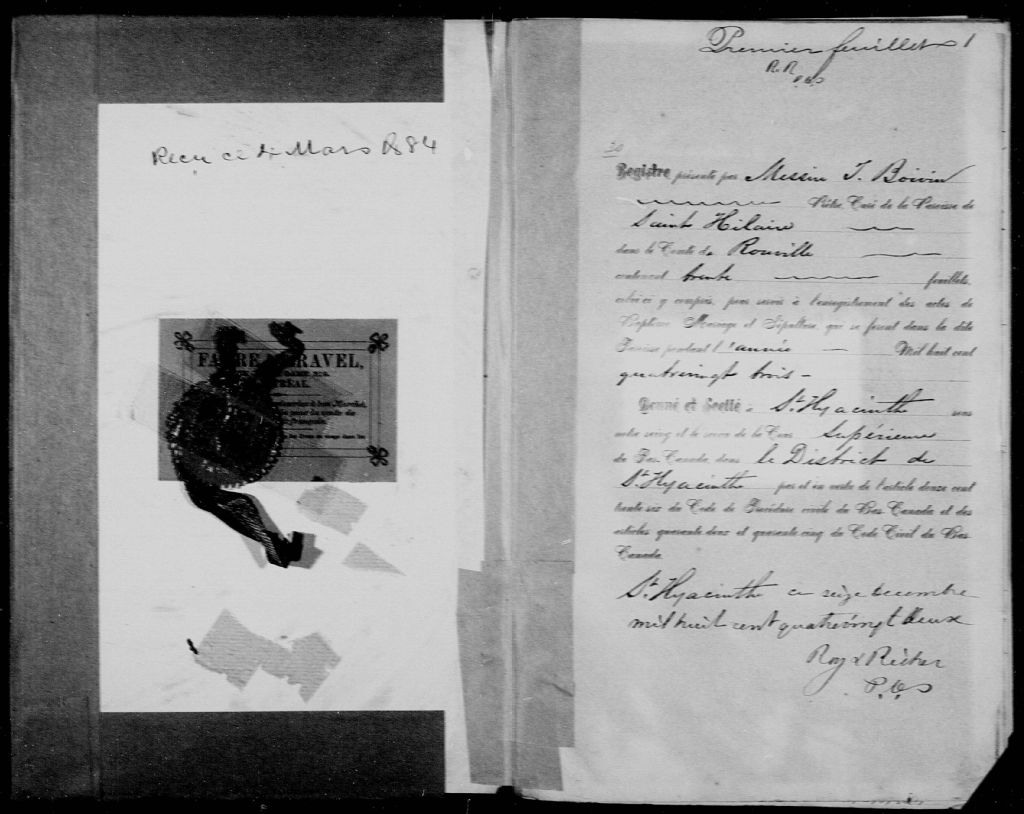 Reçu ce 4 Mars 1884
FABRE & GRAVEL,
Premier feuillet 1
R. R.
P.C.S
30
Registre présenté par Messire J. Boivin
Prêtre, Curé de la Paroisse de
Saint Hilaire
dans le Comté de Rouville
contenant trente feuillets,
celui-ci y compris, pour servir à l'enregistrement des actes de
Baptême Mariage et Sépulture, qui se feront dans la dite
Paroisse pendant l'année Mil huit cent
quatrevingt trois -
Donné et Scellé à St. Hyacinthe sous
notre seing et le sceau de la Cour Supérieure
du Bas-Canada, dans le District de
St. Hyacinthe par et en vertu de l'article douze cent
trente-six du Code de Procédure civile du Bas-Canada et des
articles quarante-deux et quarante-cinq du Code Civil du Bas-
Canada.
St. Hyacinthe ce seize decembre
mil huit cent quatrevingt deux
Roy & Richer
P.C.S